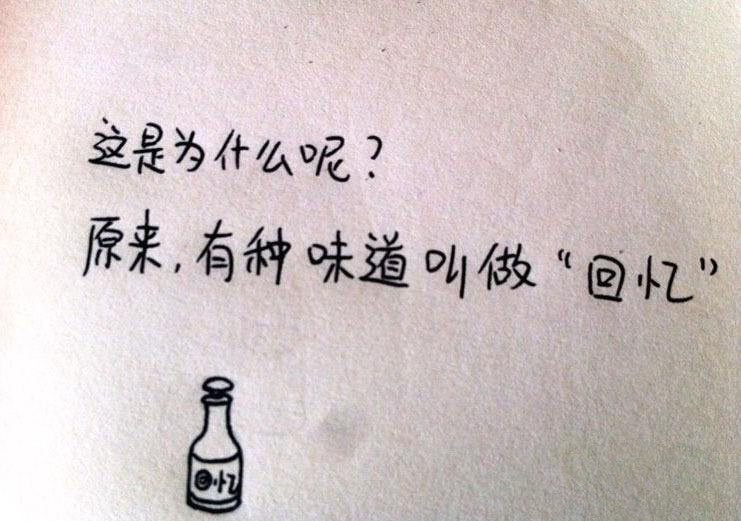 这是为什么呢?
原来,有种味道叫做“回忆”
回忆